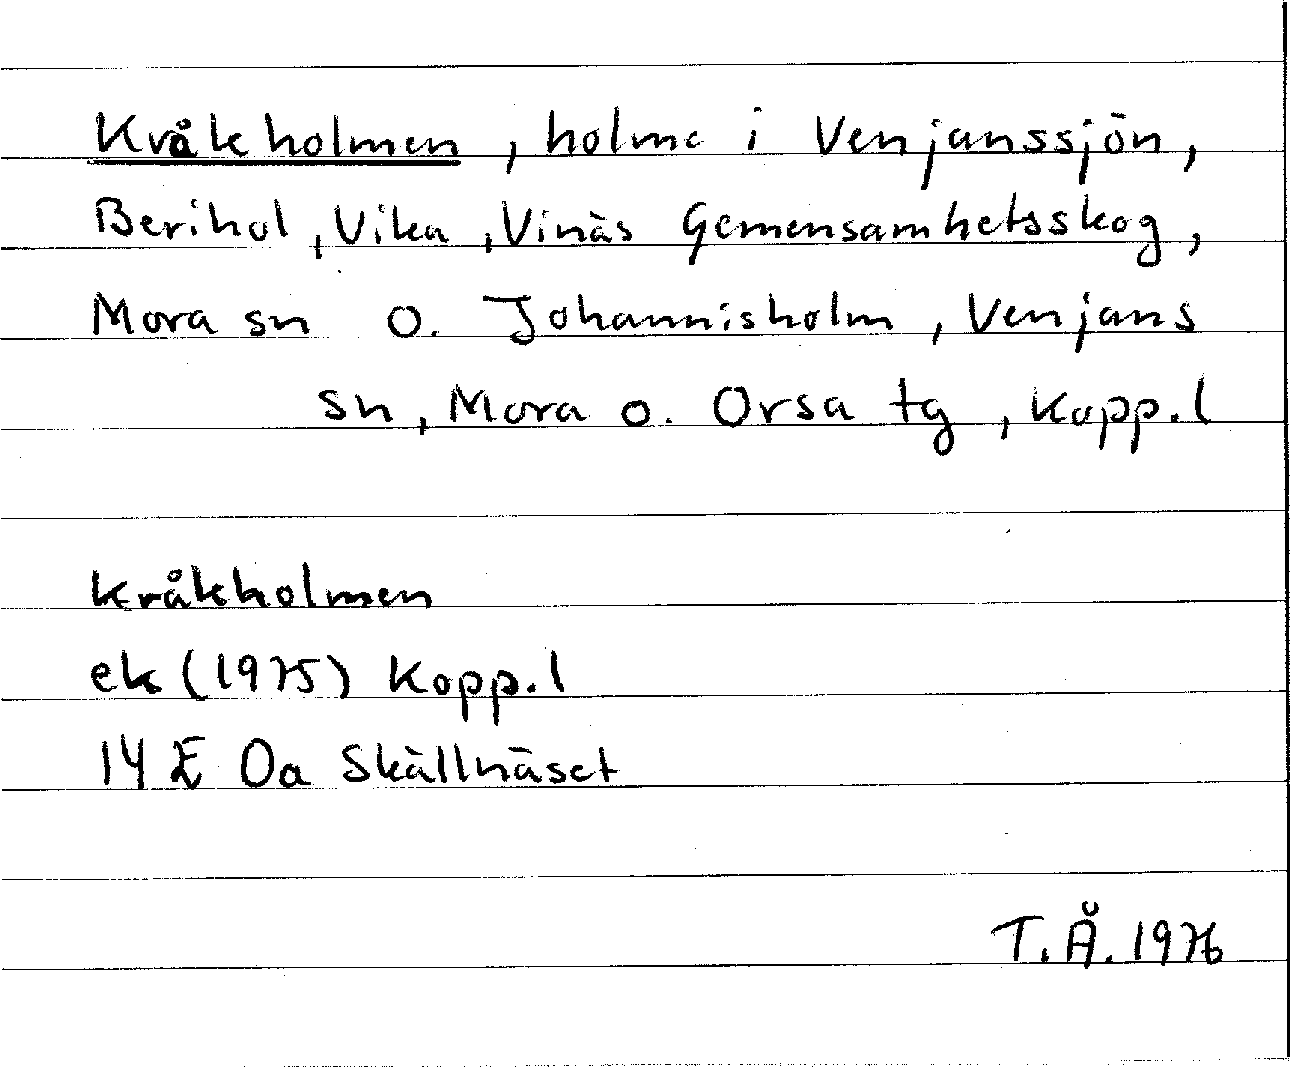 Kråkholmen, holme i Venjanssjön,
Berihol, Vika, Vinäs Gemensamhetsskog,
Mora sn o. Johannisholm, Venjans
sn, Mora o. Orsa tg, Kopp.l
Kråkholmen
ek (1975) Kopp.l
14 E 0a Skällnäset
T.Å. 1976